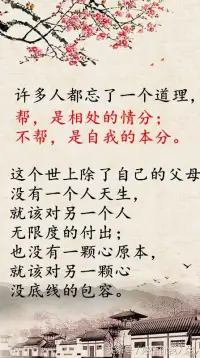 许多人都忘了一个道理，
帮，是相处的情分；
不帮，是自我的本分。
这个世上除了自己的父母
没有一个人天生，
就该对另一个人
无限度的付出；
也没有一颗心原本，
就该对另一颗心
没底线的包容。